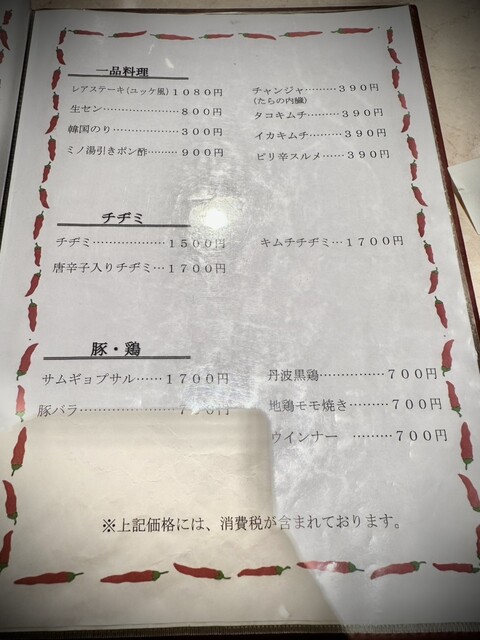 一品料理
レアステーキ(ユッケ風)１０８０円
生セン……………………８００円
韓国のり………………３００円
ミノ湯引きポン酢………９００円
チャンジャ………３９０円
(たらの内臓)
タコキムチ………３９０円
イカキムチ………３９０円
ピリ辛スルメ……３９０円
チヂミ
チヂミ………………１５００円
唐辛子入りチヂミ…１７００円
キムチチヂミ…１７００円
豚・鶏
サムギョプサル……１７００円
豚バラ
丹波黒鶏…………７００円
地鶏モモ焼き………７００円
ウインナー ………７００円
※上記価格には、消費税が含まれております。